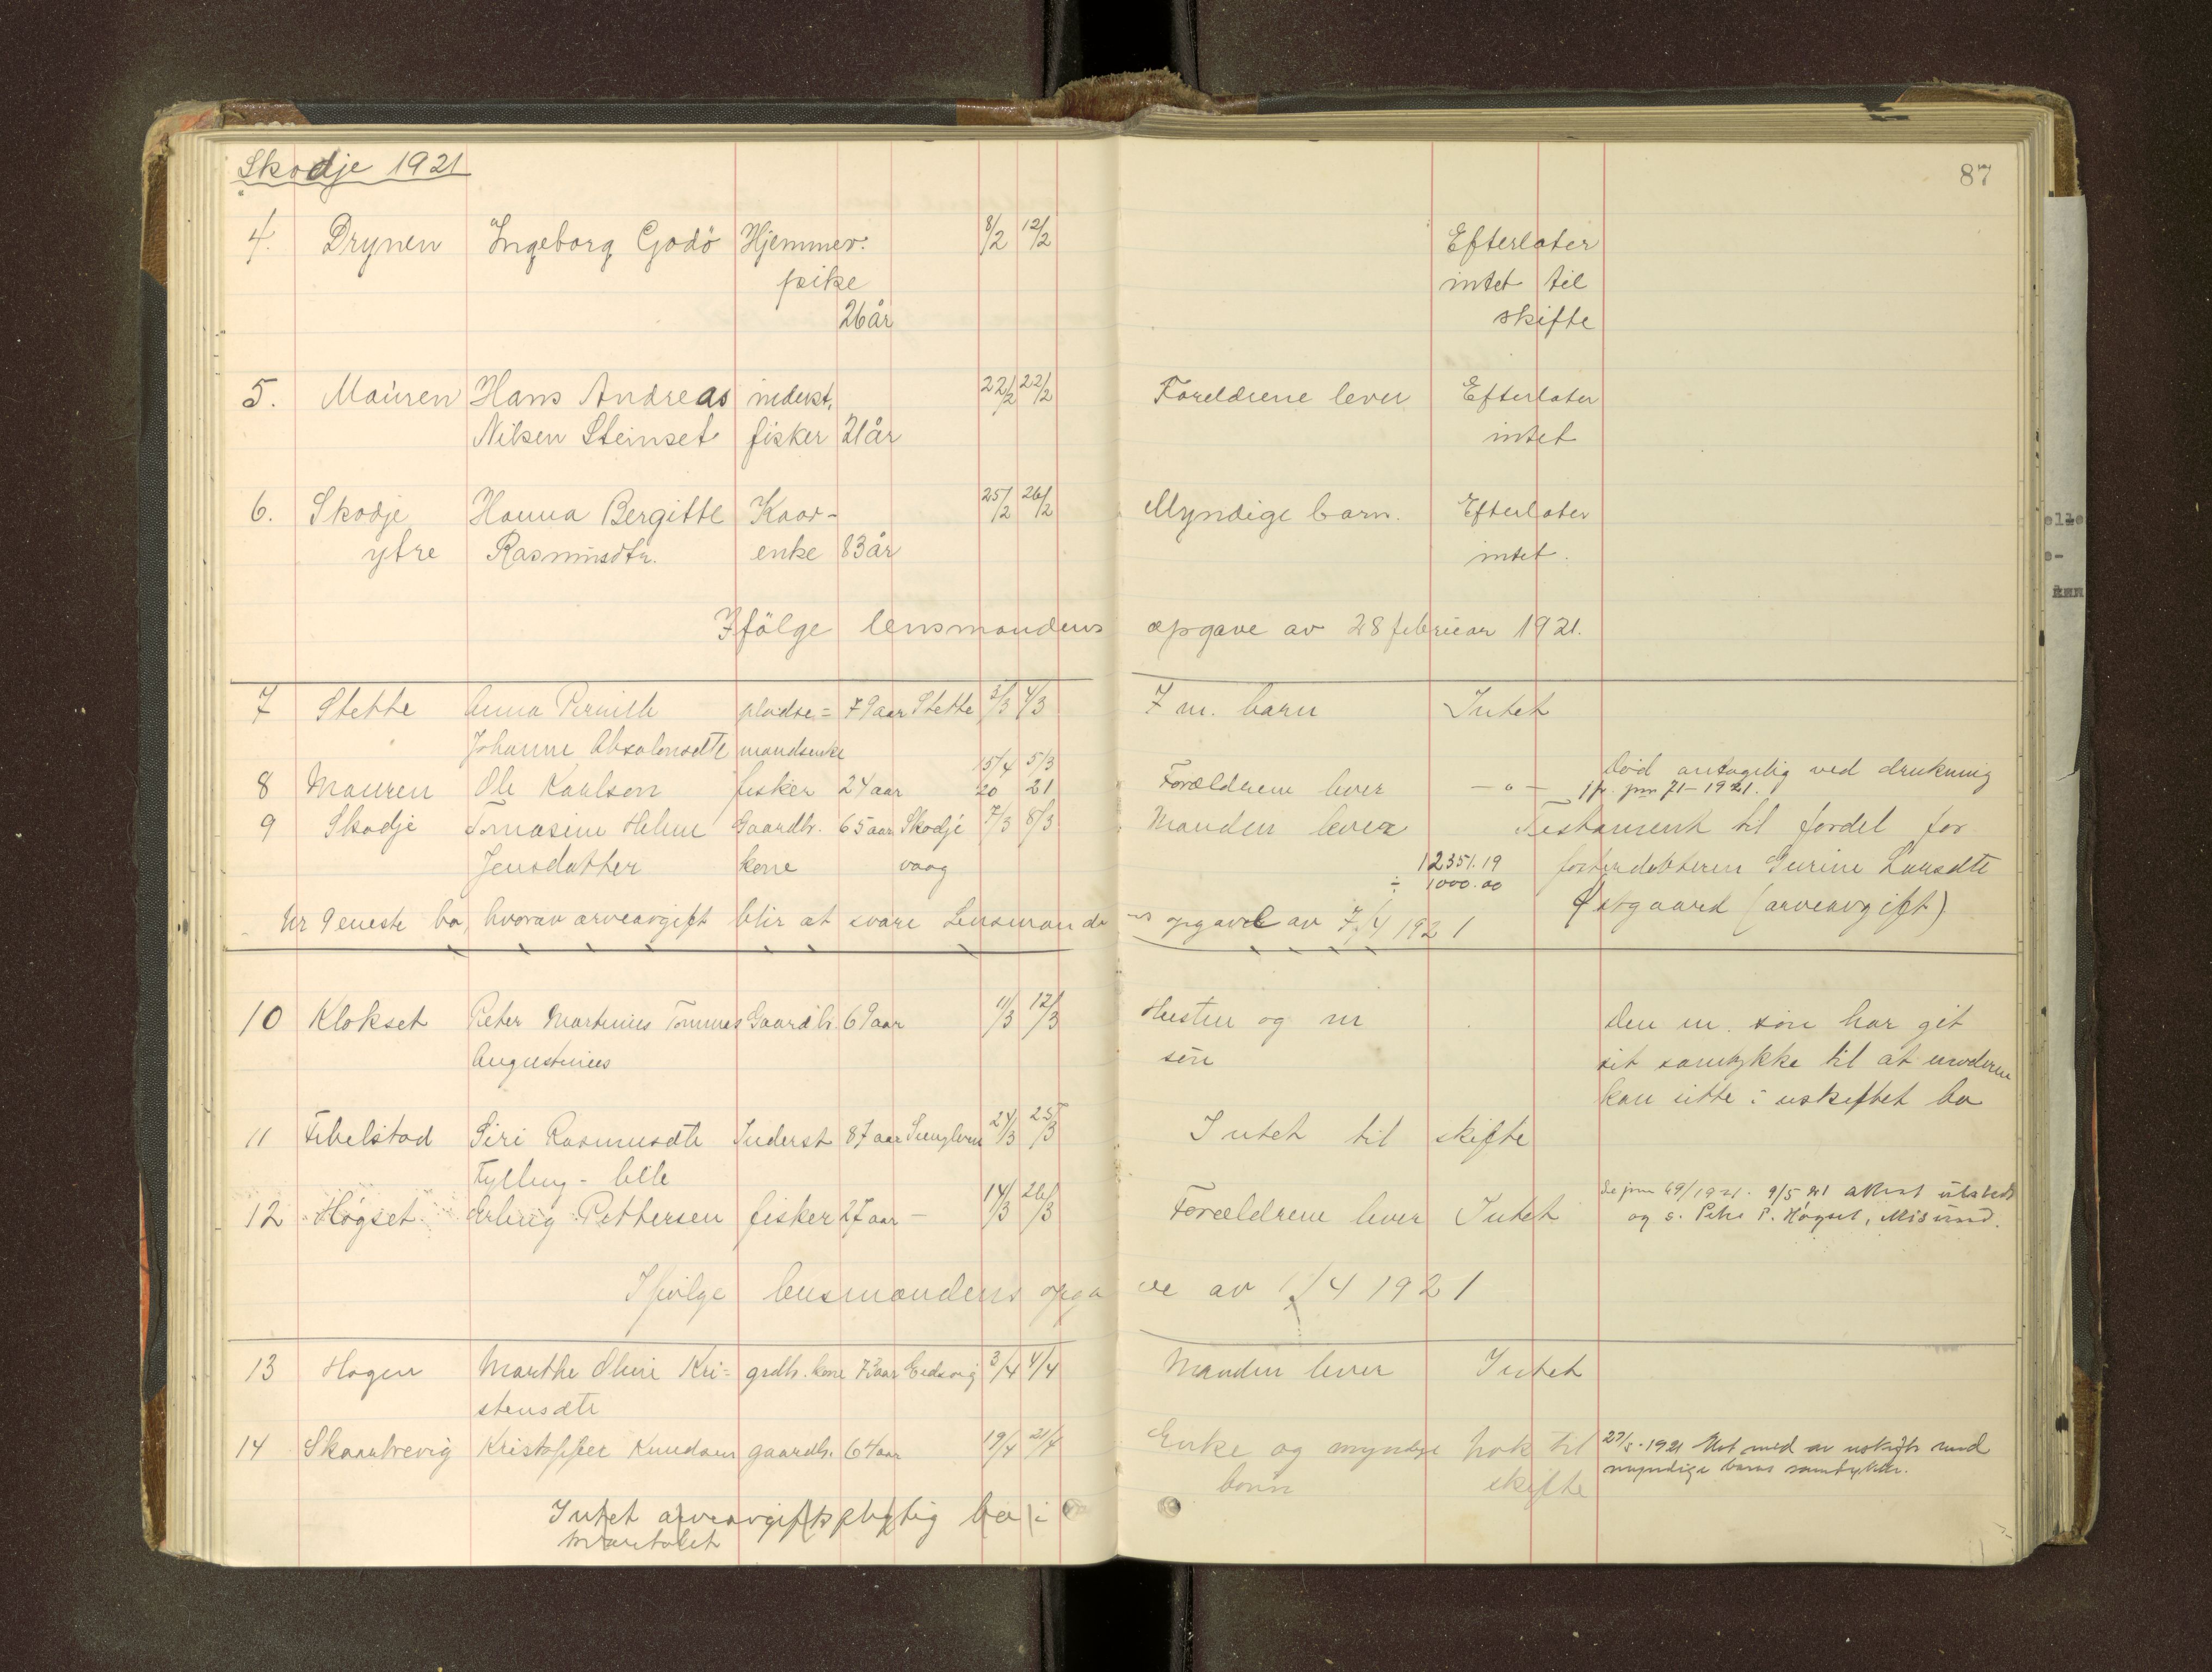 Skodje 1921
87
4. Drynen Ingeborg Godö Hjemmev: 8/2 12/2 Efterlater
pike intet til
26 år skifte
5. Mauren Hans Andreas inderst, 22/2 22/2 Foreldrene lever Efterlater
Nilsen Steinset fisker 21 år intet
6. Skodje Hanna Bergitte Kaar- 25/2 26/2 Myndige barn. Efterlater
ytre Rasmusdtr. enke 83 år intet.
Ifölge lensmandens opgave av 28 februar 1921.
7 Stette Anna Pernille pladse= 79 aar Stette 3/3 4/3 7 m. barn Intet
Johanne Absalonsdtt mandsenke
8 Mauren Ole Karlsen fisker 24 aar 15/4 20 5/3 21 Forældrene lever — " — død antagelig ved drukning
jfr. jnn 71-1921.
9 Skodje Tomasine Heline Gaardbr. 65 aar Skodje 7/3 8/3 Manden lever Testament til fordel for
Jensdatter kone vaag 12351.19 fosterdatteren Gurine Larsdtt
÷ 1000.00 Østgaard (arveavgift)
Nr 9 eneste bo, hvorav arveavgift blir at svare Lensmandens opgave av 7/4 1921
10 Klokset Peter Martinus Tommas Gaardb. 69 aar 11/3 12/3 Hustru og m den m. søn har git
Augustinus søn sit samtykke til at moderen
kan sitte i uskiftet bo
11 Fihelstad Siri Rasmusdtt Inderst 87 aar 24/3 25/3 Intet til skifte
Fylling - lille
12 Høgset Erling Pettersen fisker 27 aar — 14/3 26/3 Forældrene lever Intet Se jnn 49/1921. 9/5 21 attest utstedt
og s. P. Høgset, Misund.
Ifølge lensmandens opgave av /4 1921
13 Hagen Marthe Oline Kri= grdbr. kone 73 aar Eidsvig 3/4 4/4 Manden lever Intet
stensdtt
14 Skaarbrevig Kristoffer Knudsen gaardb. 64 aar 19/4 21/4 Enke og myndige nok til 27/5-1921 uskifte med
barn skifte myndige barns samtykke.
Intet arveavgiftspligtig bo i
kvartalet
elle
e-
ken